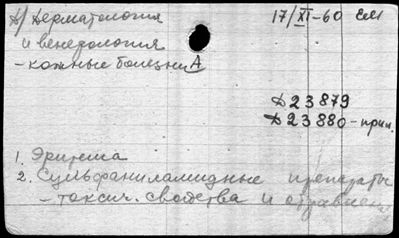 А) Дерматология 17/XI-60 Ем
и венерология
- кожные болезни А
Д23879
Д23880 - прил.
1. Эритема
2. Сульфаниламидные препараты
- токсич. свойства и отравлен.